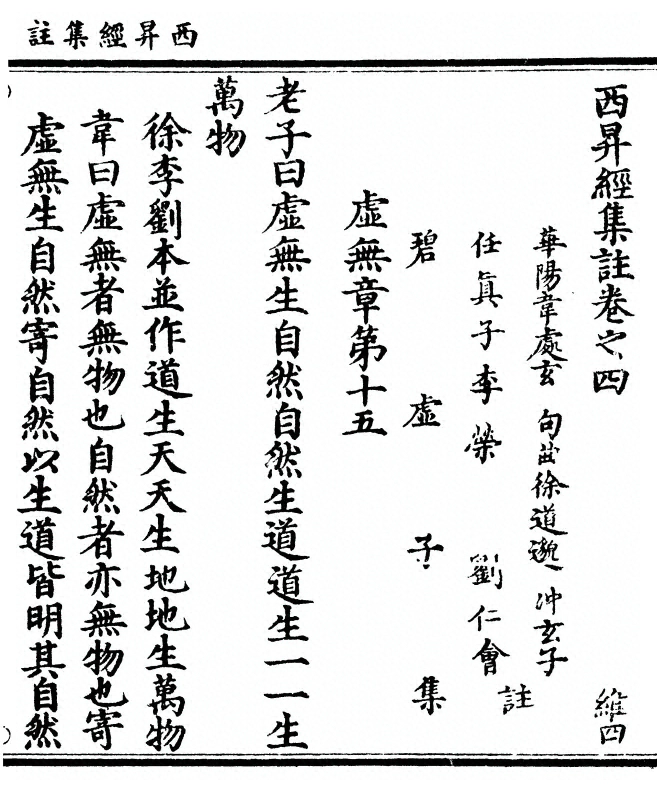 西昇經集註
西昇經集註卷之四
維四
華陽韋處玄 句曲徐道邈 冲玄子
任眞子李榮 劉仁會 註
碧虛子集
虛無章第十五
老子曰虛無生自然自然生道道生一一生
萬物
徐李劉本並作道生天天生地地生萬物
韋曰虛無者無物也自然者亦無物也寄
虛無生自然寄自然以生道皆明其自然